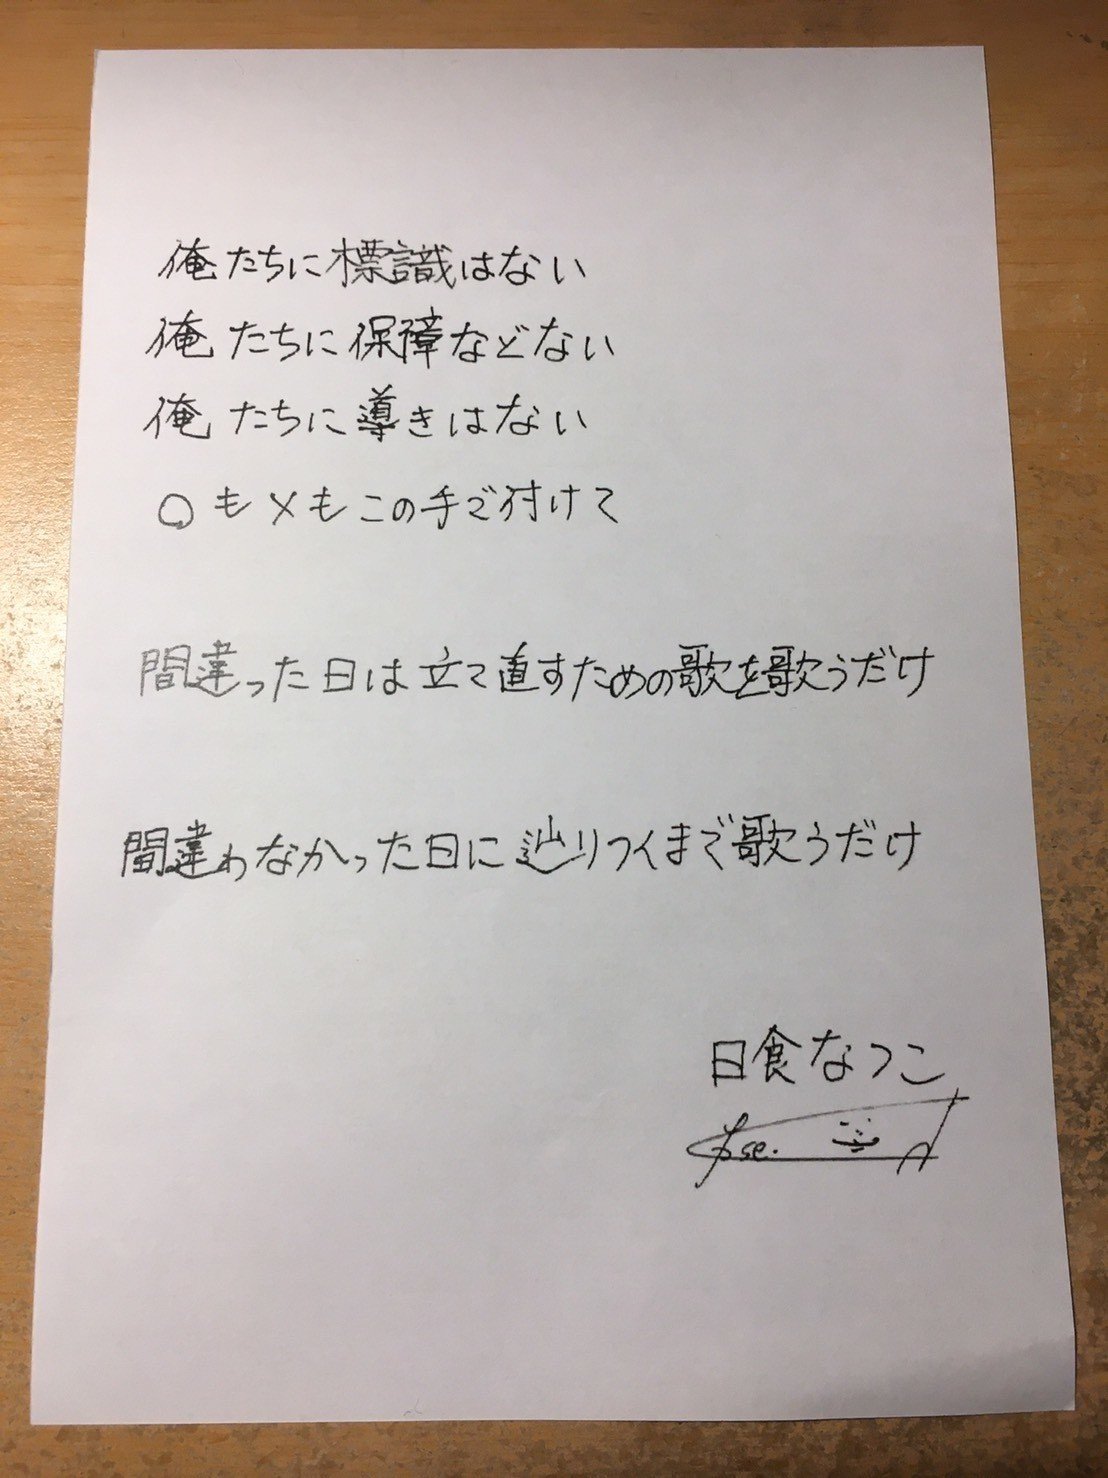 俺たちに標識はない
俺たちに保障などない
俺たちに導きはない
○も×もこの手で付けて
間違った日は立て直すための歌を歌うだけ
間違わなかった日に辿りつくまで歌うだけ
日食なつこ